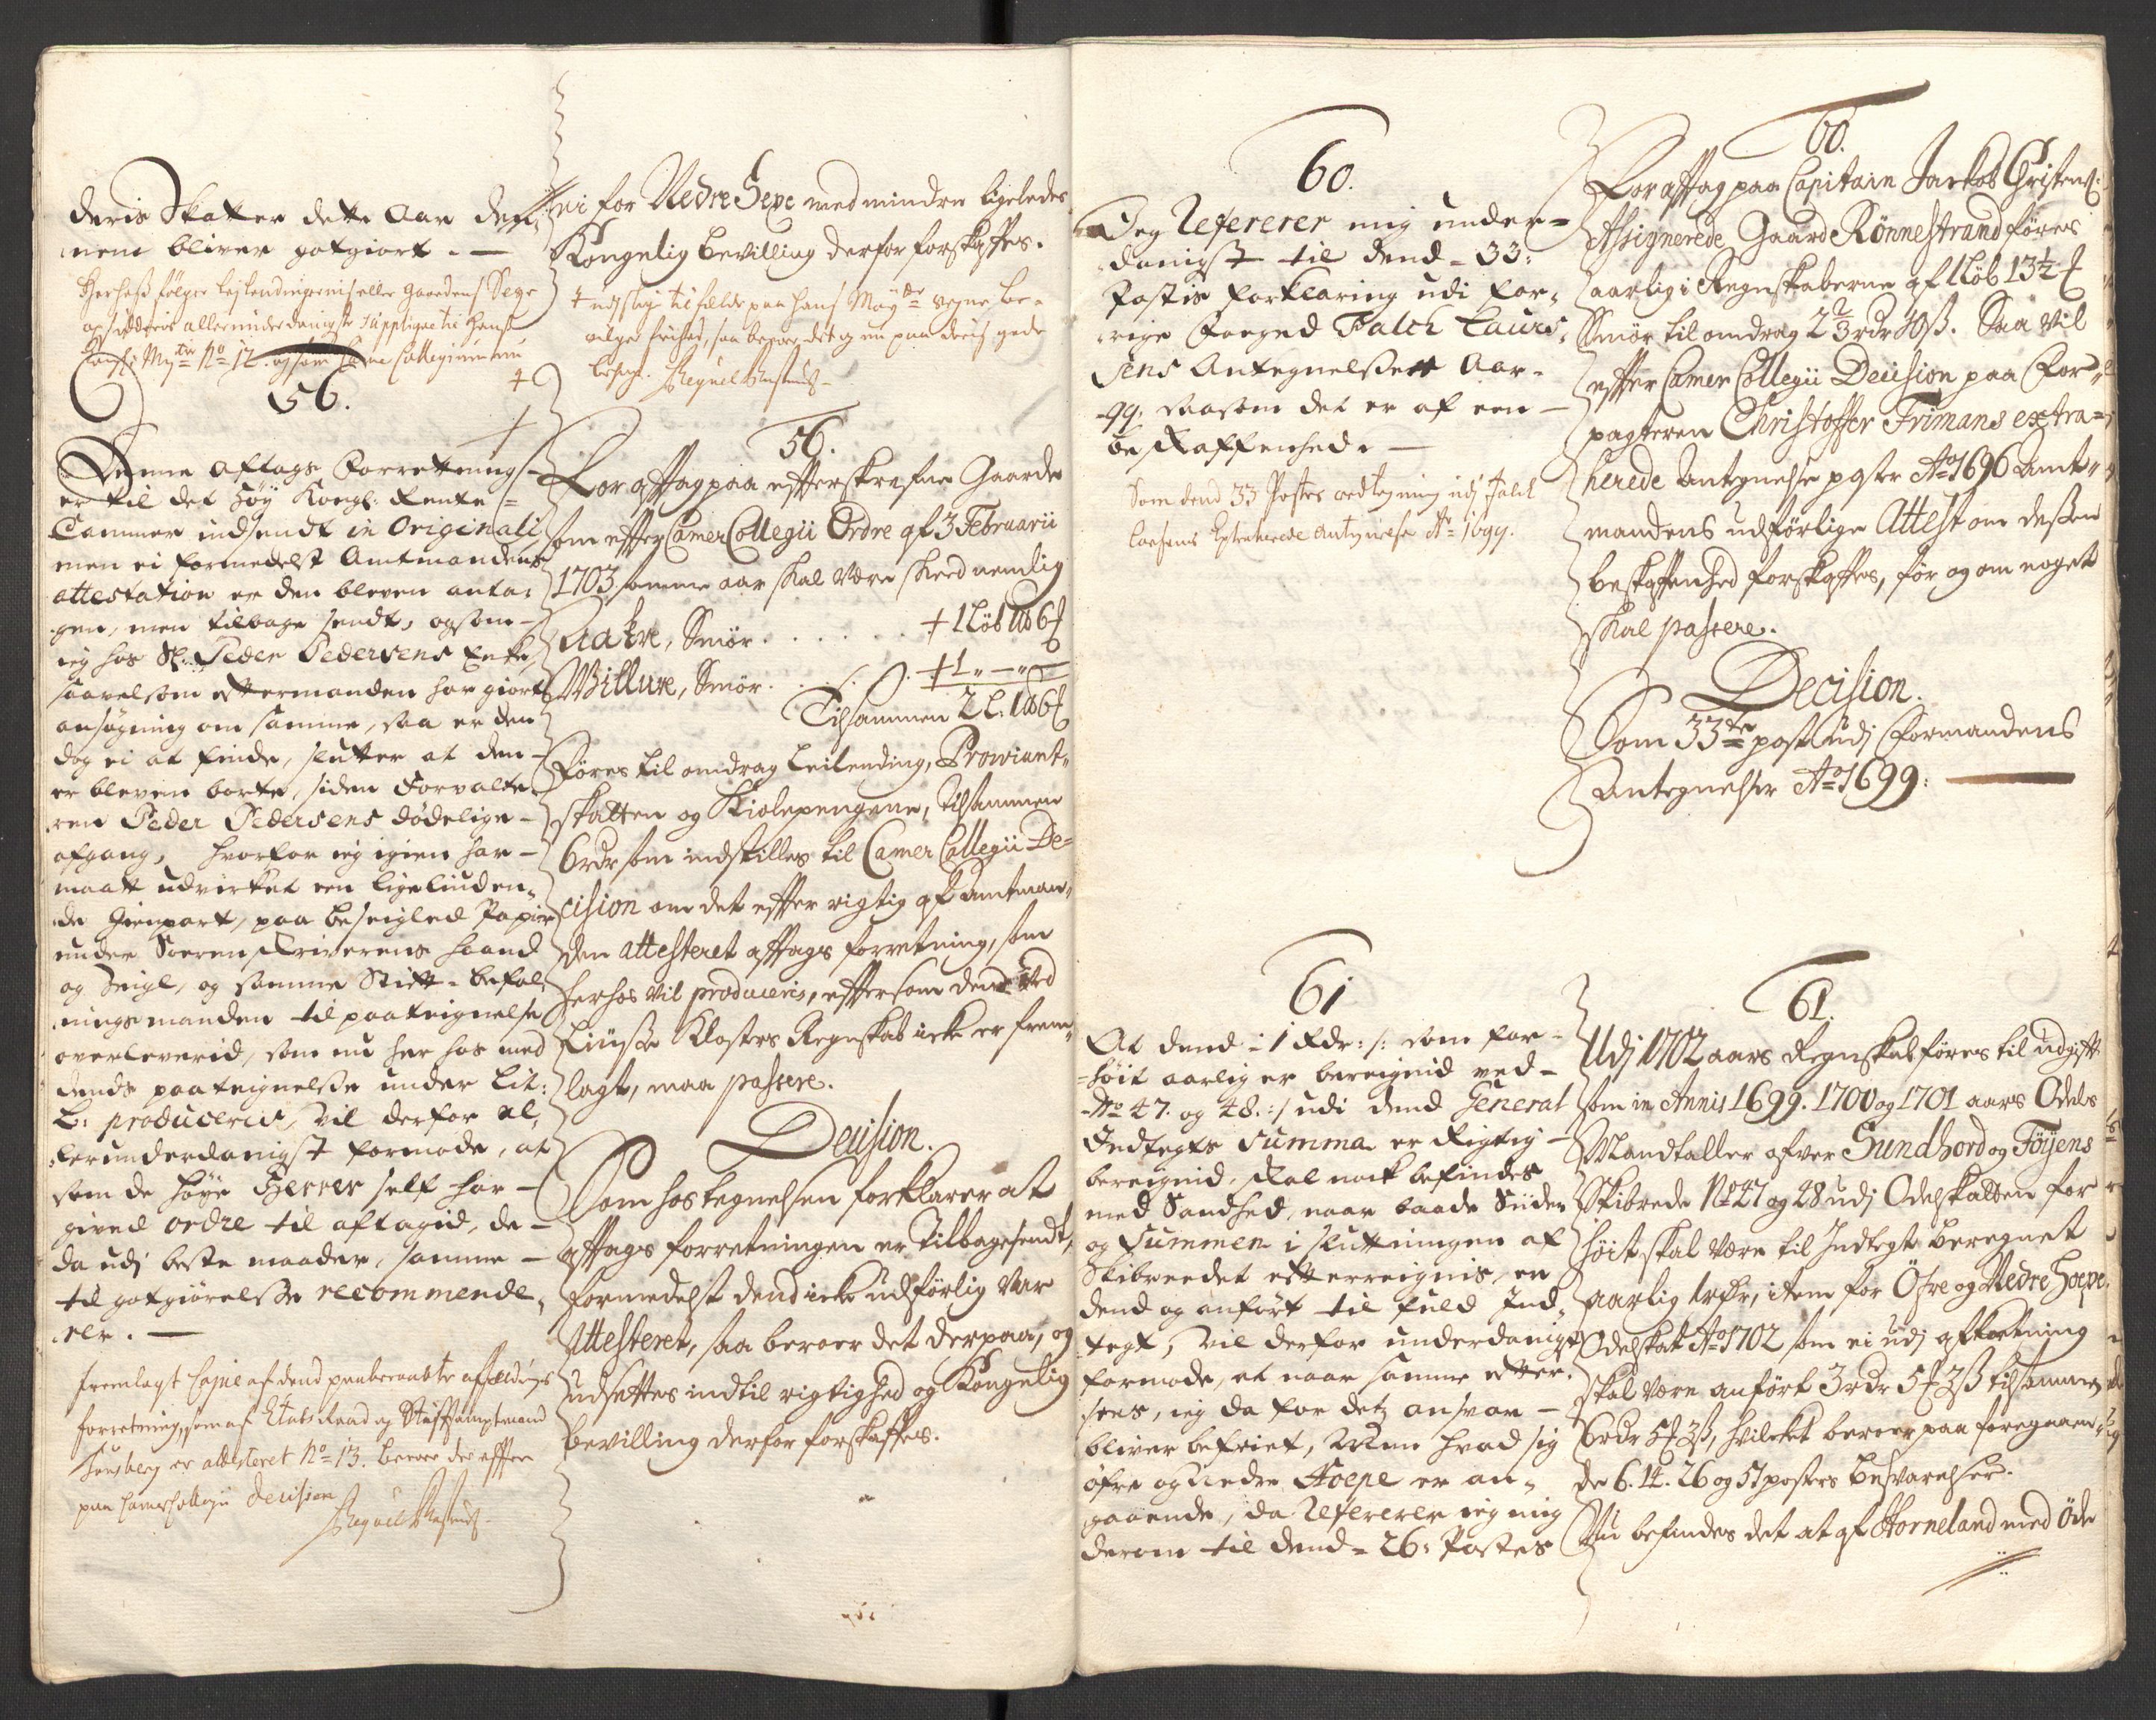 deris Skatter dette Aar den„
nem bliver gotgiort. —
Herhoß følger lejlendingernis eller gaardens Sepe
opsidderis allerunderdanigste suppliqve til Hans
Kongl: May.tts No 12. og som Camer Collegium nu
56.
Denne Aftags Forretning
er til det Høy Kongl: Rente=
Cammer indsendt in Originali
men ei formedelst Amtmandens
attestation er den bleven anta:
gen, men tilbage sendt, og som
ieg hos Sl: Peder Pedersens Enke,
saavelsom Eftermanden har giort
ansøgning om samme, saa er den
dog ei at finde, slutter at den
er bleven borte, siden Forvalte„
ren Peder Pedersens dødelige
afgang, hvorfor ieg igien har
maatt udvirket een ligeliuden„
de gienpart, paa beseigled Papir
under Sorenskriverens haand
og Seigl, og samme Stift-befal„
nings manden til paateignelse
overleverid, som nu her hos med
dends paateignelse under Lit:
L: produceris, vil derfor al„
lerunderdanigst formode, at
som de høye Herrer self har
gived ordre til aftagid, de
da udj beste maader, samme
til gotgiørelse recommende„
rer. —
fremlagt Copie af dend paaberaabte affældings
forretning, som af Etats Raad og Stiftsamptmand
Tønsberg er attesteret No 13. beroer der effter
paa Camer Collegii Decision
ni for Nedre Sepe med mindre ligeledes
Kongelig bevilling derfor forskaffes.
+ udj slige tilfælde paa Hans Mayts vegne be-
vilger frihed, saa beroer det og nu paa deris gode
behag.
56.
For afftag paa effterskrefne Gaarde
som effter Camer Collegii Ordre af 3 Februarii
1703 samme aar skal være skeed nemlig
Aakre, Smør . . . . . + 1 Løb 1 [...] 6 [...]
Millure, Smør . . . . + 1 „ — „ —
Tilsammen 2 L: 1 [...] 6 [...]
Føres til omdrag Leilending, Proviant„
skatten og Kiolepengene, tilsammen
6 rdr som indstilles til Camer Collegii De=
cision om det effter rigtig af Amtman„
den attesteret afftags forretning, som
herhos vil produceris, effter som dend ved
Liusse Klosters Regnskab icke er frem„
lagt, maa passere.
Decision.
Som hostegnelsen forklarer at
afftags forretningen er tilbagesendt,
formedelst dend icke udførlig var
Attesteret, saa beroer det derpaa, og
udsettes indtil rigtighed og Kongelig
bevilling derfor forskaffes.
60.
Jeg Refererer mig under=
danigst til dend 33:
Postis forklaring udi for„
rige Foeged Falch Laurs:
sens Antegnelsser Aar-
99. saasom det er af een
beskaffenhed. —
Som dend 33 Postes vedtegning udj Falck
Larsens Extraherede Antegnelse Ao 1699.
60.
For afftag paa Capitain Jackob Christens:
Assignerede Gaard Rønnestrand føres
aarlig i Regnskaberne af 1 Løb 13½ [...]
Smør til omdrag 2⅔ rdr 10 ß. Saa vil
effter Camer Collegii Decision paa For„
pagteren Christoffer Frimans extra=
herede Antegnelse poster Ao 1696 Amt„
mandens udførlige Attest om deßen
beskaffenhed forskaffes, før og om noget
skal passere.
Decision.
Som 33te post udj Formandens
Antegnelser Ao 1699: —
61
At dend 1 Rdr: /: som for-
høit aarlig er bereignid ved
No 47. og 48. :/ udi dend General
Indtegts summa er Rigtig
bereignid, skal nock befindes
med Sandhed, naar baade Siiden
og Summen i slutningen af
Skibreedet effterreignis, er
dend og anført til fuld Ind„
tegt, vil derfor underdanigst
formode, at naar samme effter„
sees, ieg da for detz ansvar
bliver befriet, Men hvad sig
øfre og Nedre Hoepe er an„
gaaende, da Refererer ieg mig
derom til dend 26: Postes
61.
Udj 1702 aars Regnskab føres til udgift
som in Annis 1699. 1700 og 1701 aars Odels
Mandtaller ofver Sundhord og Føyens
Skibrede No 47 og 48 udj Odelskatten for
høit skal være til Indtegt beregnet
aarlig 1 rdr, item for Øfre og Nedre Hoepe
Odelskat Ao 1702 som ei udj afkortning
skal være anført 3 rdr 5 [...] 3 ß tilsammen
6 rdr 5 [...] 3 ß, hvilcket beroer paa foregaaen„
de 6. 14. 26 og 51 posters besvarelser.
Nu befindes det at af Horneland med Øde